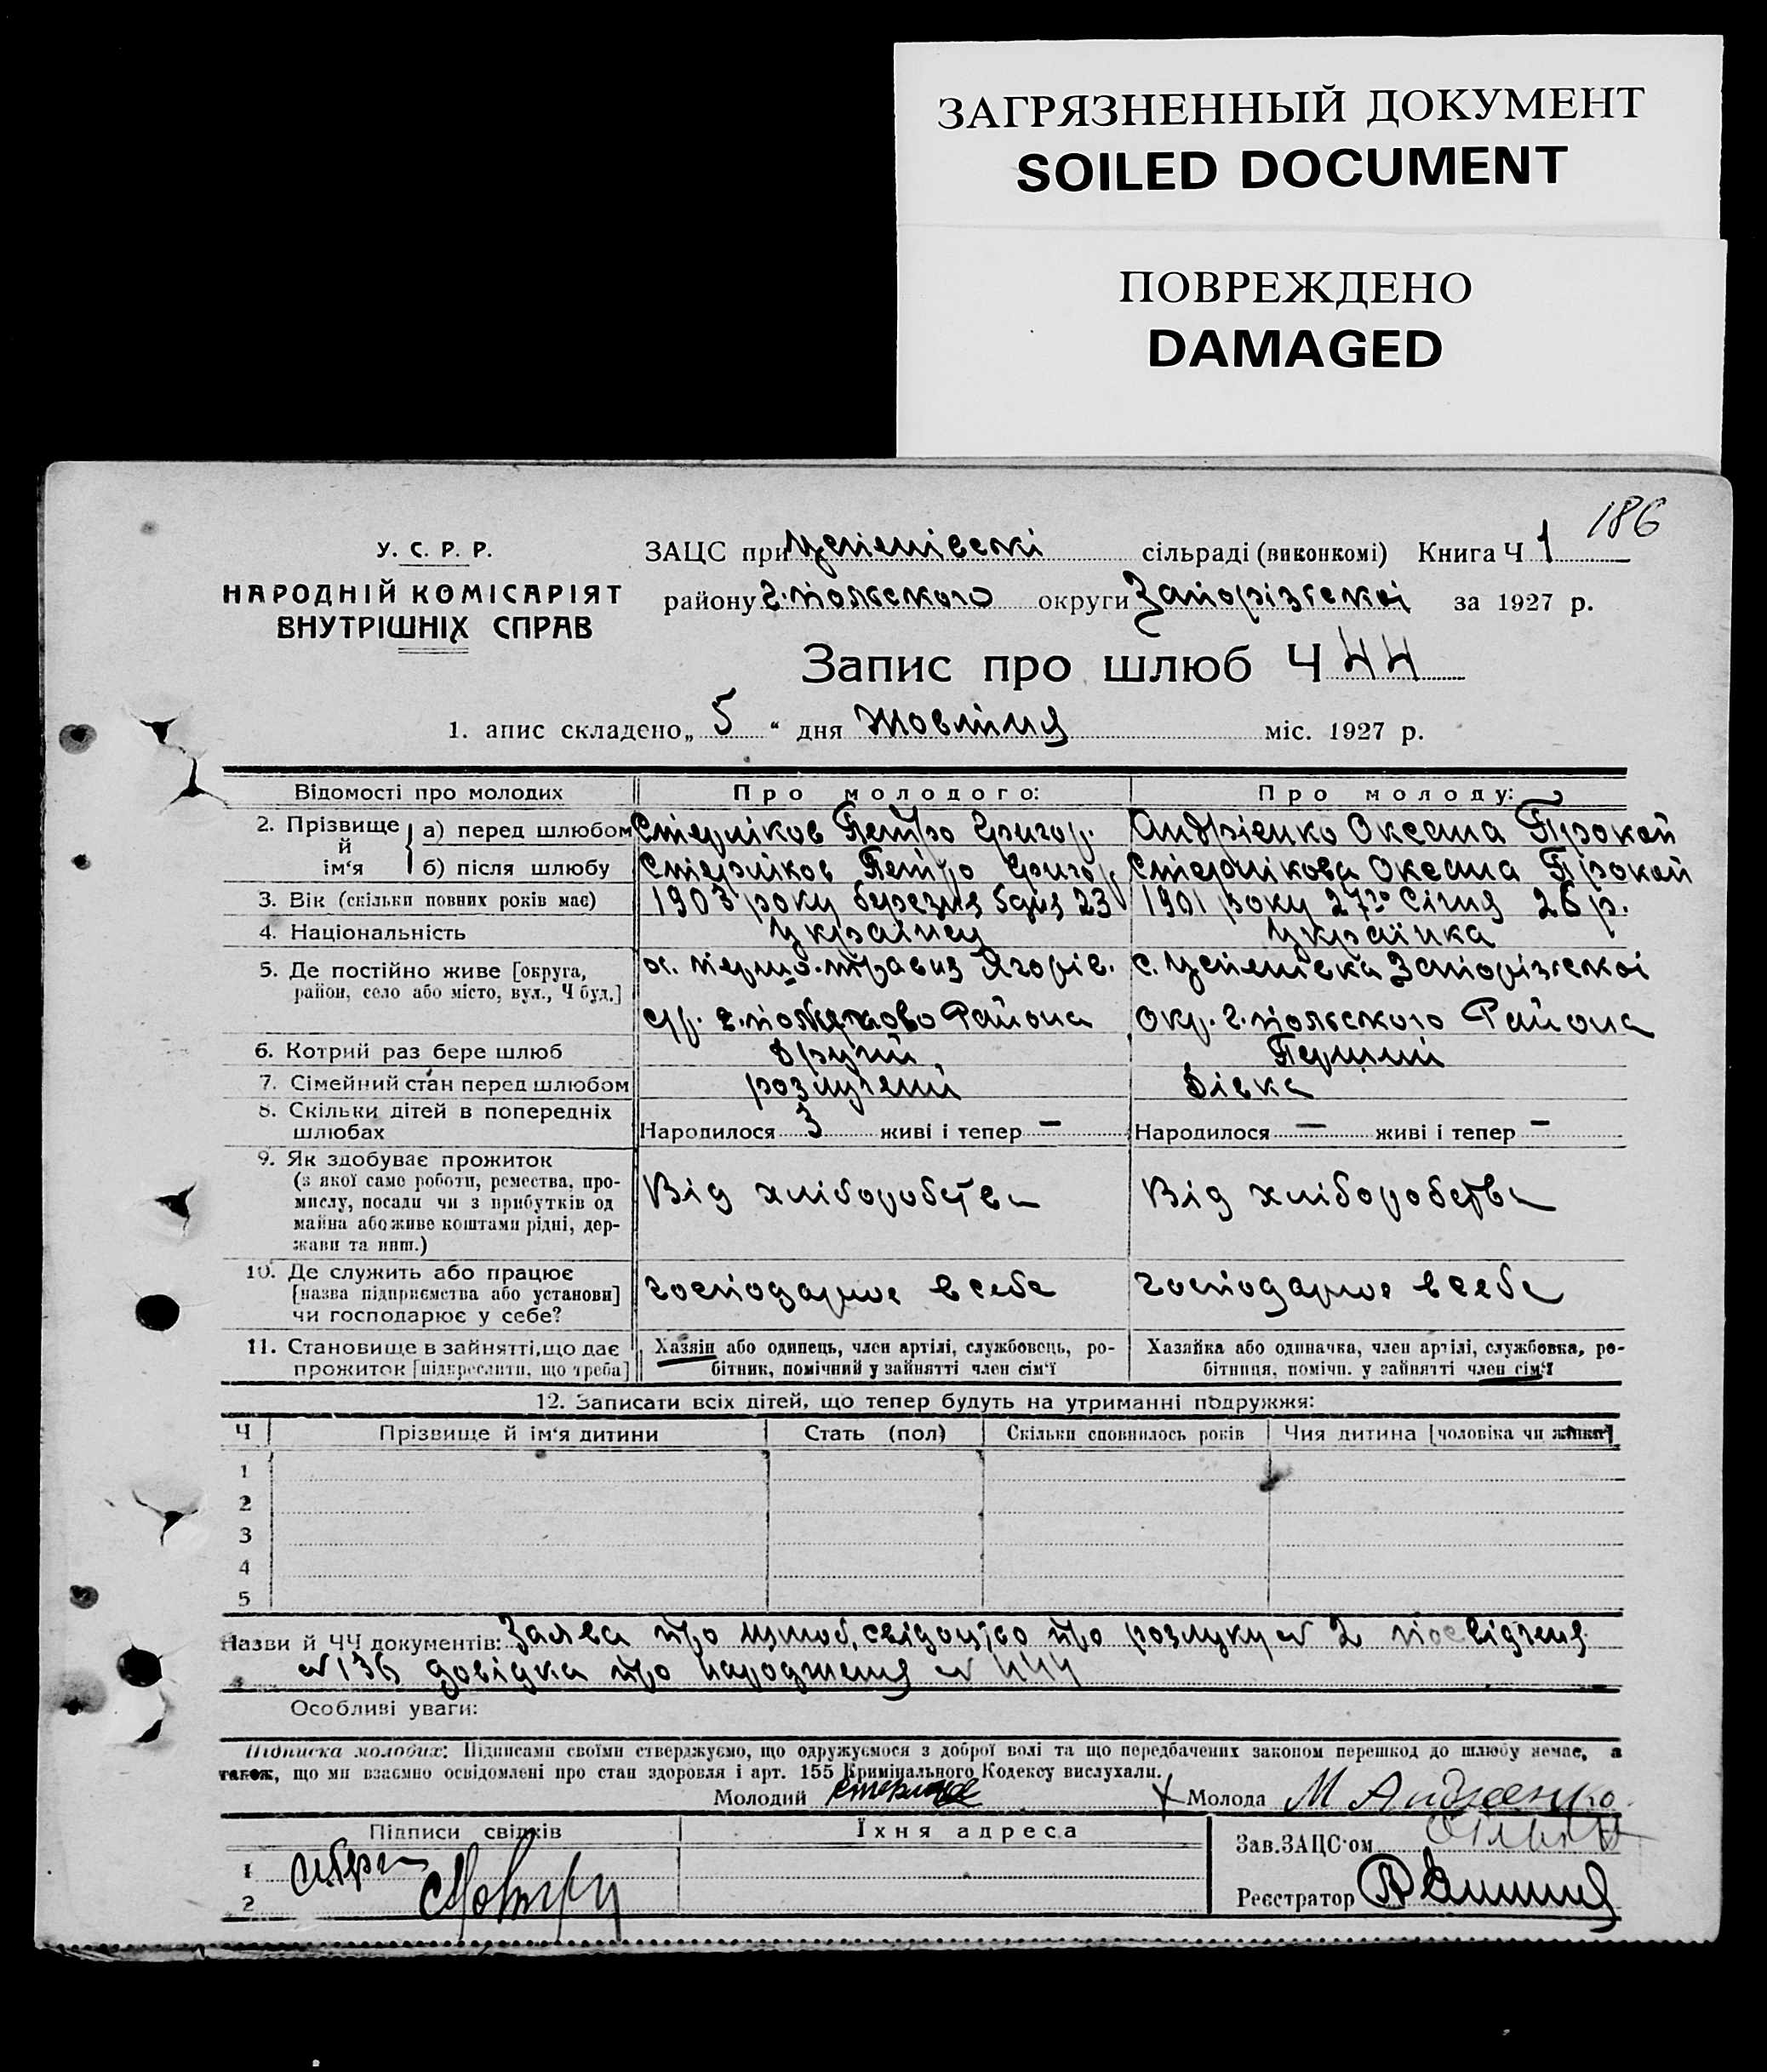 ЗАГРЯЗНЕННЫЙ ДОКУМЕНТ
SOILED DOCUMENT
ПОВРЕЖДЕНО
DAMAGED
186
У. С. Р. Р.
НАРОДНІЙ КОМІСАРІЯТ
ВНУТРІШНІХ СПРАВ
ЗАЦС при Успенівські сільраді (виконкомі) Книга Ч 1
району Г.польского округи Запорізської за 1927 р.
Запис про шлюб Ч 44
1. апис складено „ 5 “ дня жовтня міс. 1927 р.
Відомості про молодих Про молодого: Про молоду:
2. Прізвище й ім‘я а) перед шлюбом Стерліков Петро Григор. Андрієнко Оксана Прокоп
б) після шлюбу Стерліков Петро Григор Стерлікова Оксана Прокоп
3. Вік (скільки повних років має) 1903 року березня 5 дня 23 1901 року 27го Січня 26 р.
4. Національність Українец Українка
5. Де постійно живе [округа, район, село або місто, вул., Ч буд.] травня Ягорів. с. Успенівка Запорізської
Района окр. Г.польского Района
6. Котрий раз бере шлюб другий Перший
7. Сімейний стан перед шлюбом розлучений дівка
8. Скільки дітей в попередніх шлюбах Народилося 3 живі і тепер — Народилося — живі і тепер —
9. Як здобуває прожиток
(з якої саме роботи, ремества, про-
мислу, посади чи з прибутків од
майна або живе коштами рідні, дер-
жави та инш.)
Від хліборобства Від хліборобства
10. Де служить або працює
[назва підприємства або установи]
чи господарює у себе?
господарює в себе господарює в себе
11. Становище в зайнятті, що дає
прожиток [підкреслити, що треба]
Хазяін або одинець, член артілі, службовець, ро-
бітник, помічний у зайнятті член сім‘ї
Хазяйка або одиначка, член артілі, службовка, ро-
бітниця, помічн. у зайнятті член сім‘ї
12. Записати всіх дітей, що тепер будуть на утриманні подружжя:
Ч Прізвище й ім‘я дитини Стать (пол) Скільки сповнилось років Чия дитина [чоловіка чи жінки]
1
2
3
4
5
Назви й ЧЧ документів: Заява про шлюб, свідоцтво про розлуку № 2 посвідченя
№ 136 довідка про народженя № 444
Особливі уваги:
Підписка молодих: Підписами своїми стверджуємо, що одружуємося з доброї волі та що передбачених законом перешкод до шлюбу немає, а
також, що ми взаємно освідомлені про стан здоровля і арт. 155 Кримінального Кодексу вислухали.
Молодий Молода М Андрєенко
Підписи свідків Їхня адреса Зав. ЗАЦС‘ом
1
2
Реєстратор